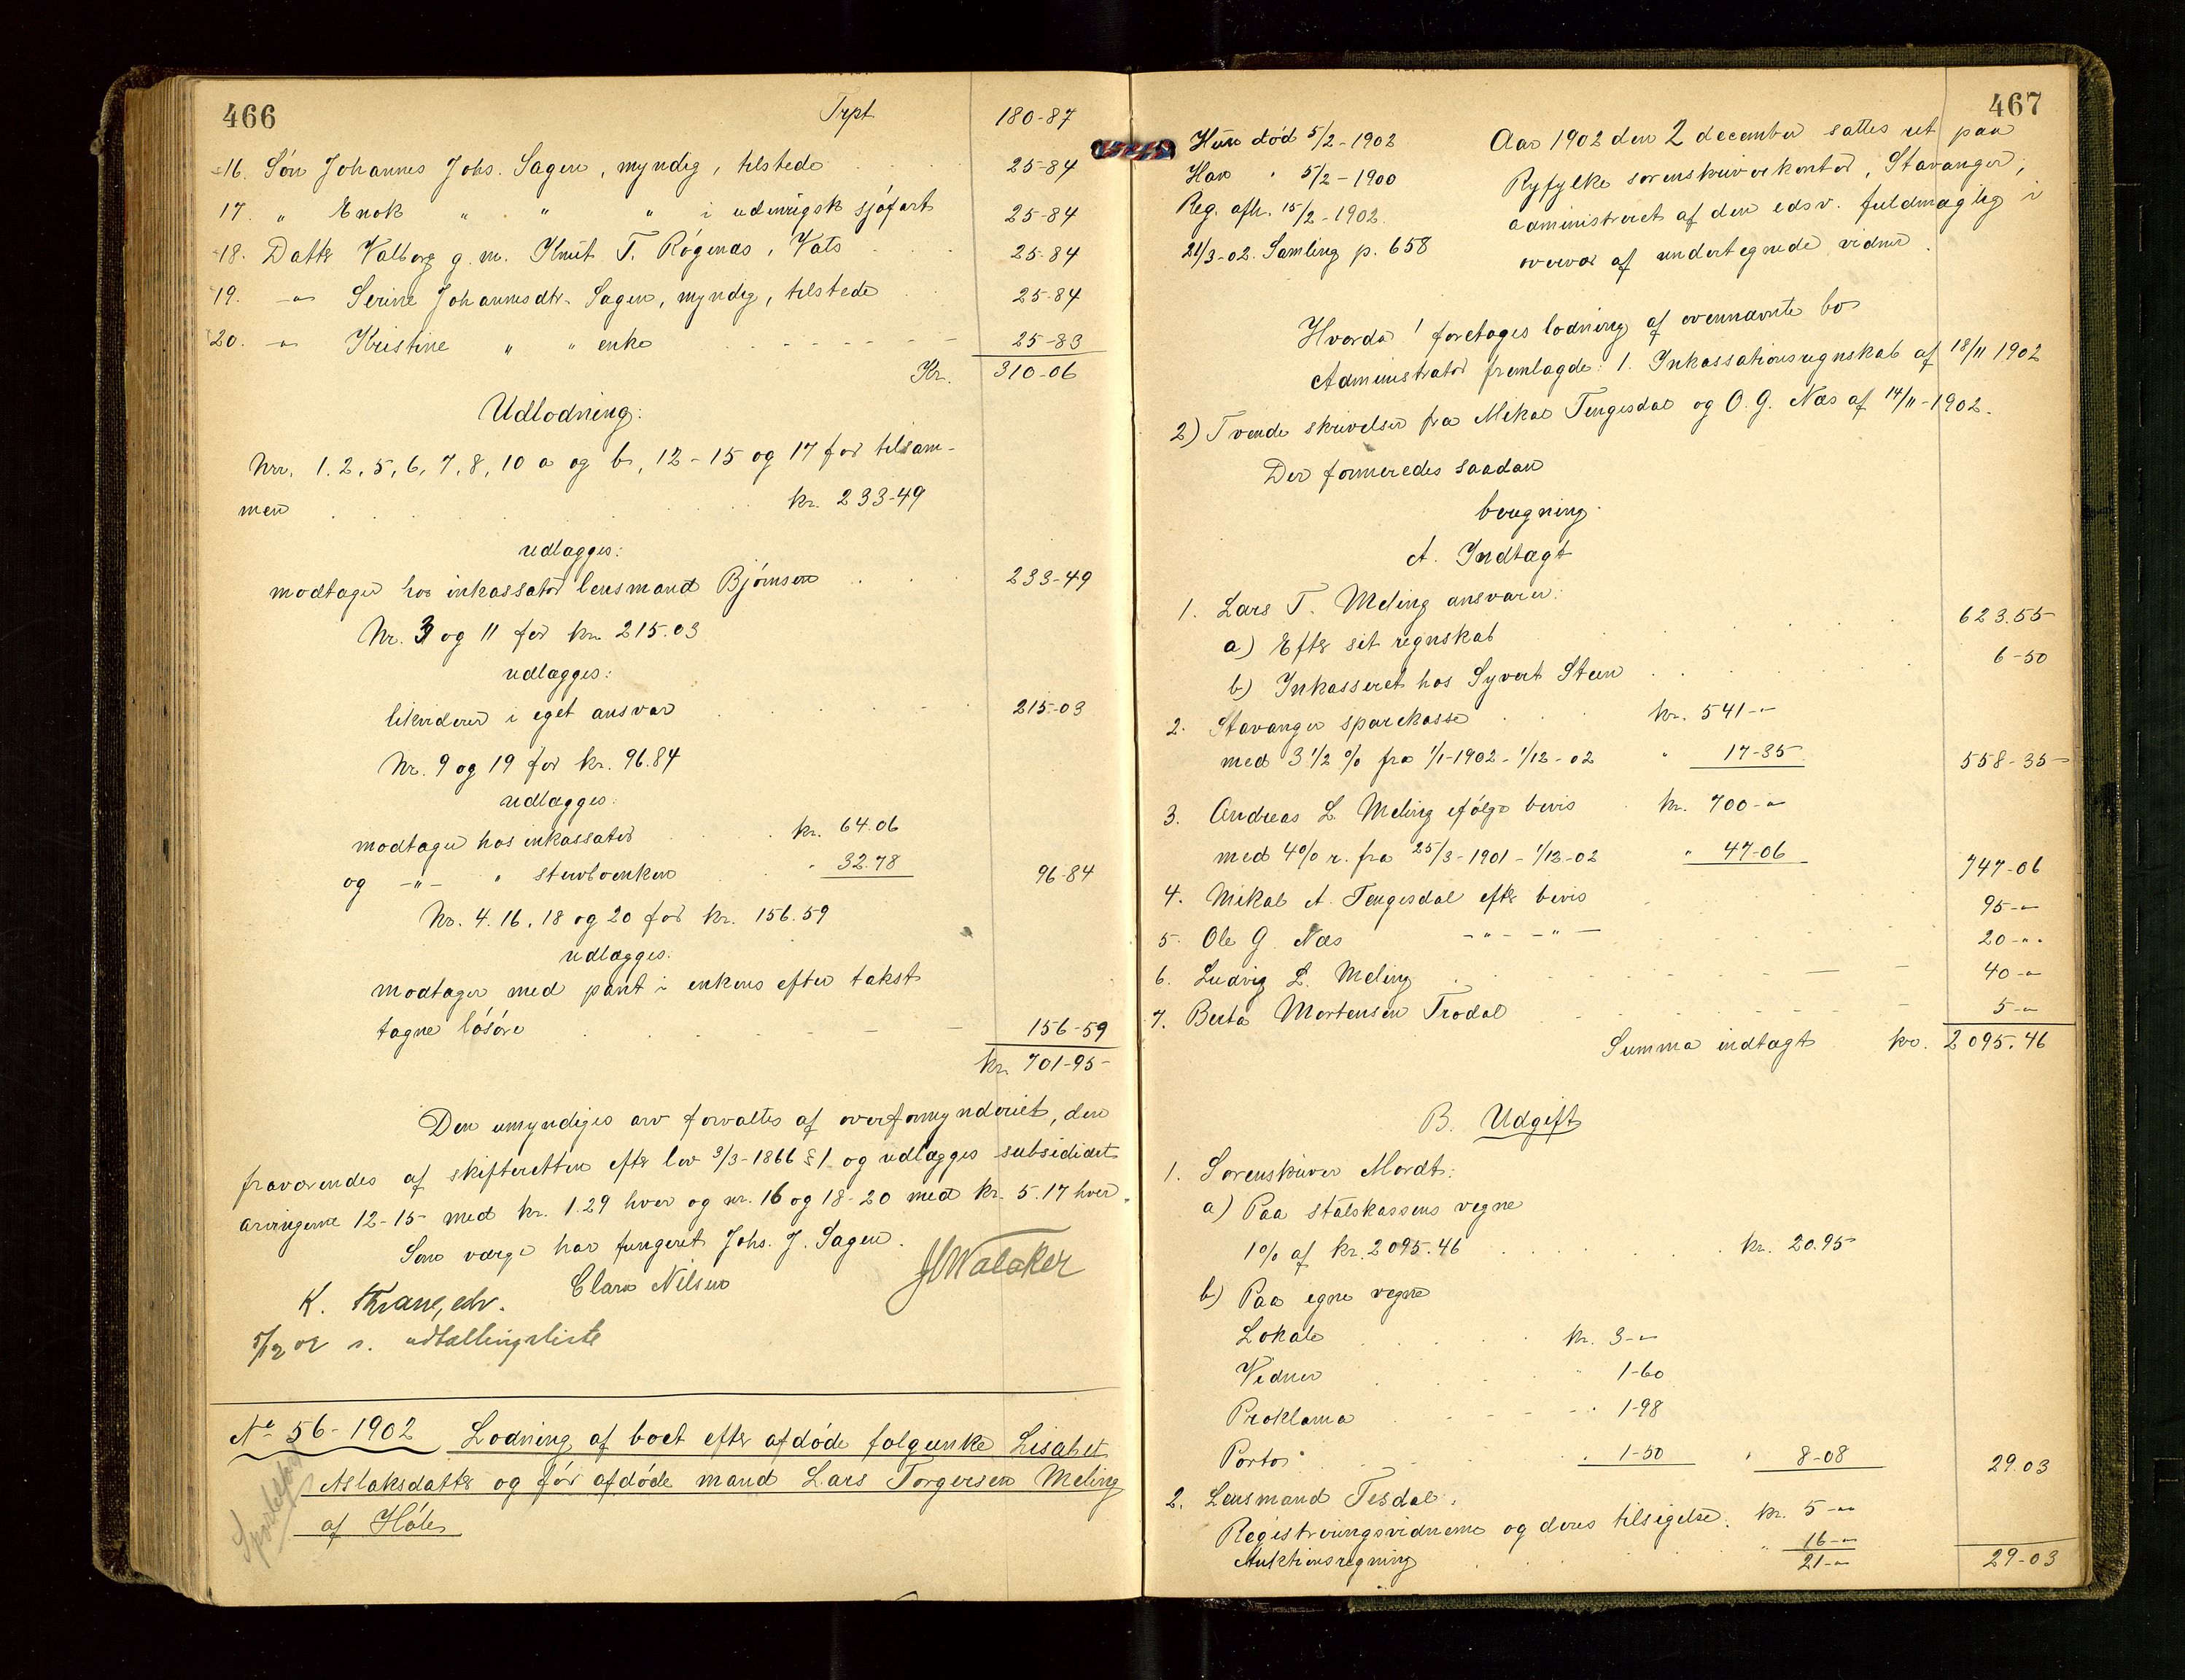 466
Trpt. 180-87
16. Søn Johannes Johs. Sagen, myndig, tilstede 25-84
17. " Enok " " " i udenrigsk sjøfart 25-84
18. Datter Valborg g. m. Knut T. Røgenæs, Vats 25-84
19. -"- Serine Johannesdtr. Sagen, myndig, tilstede 25-84
20. -"- Kristine " " enke 25-83
Kr. 310-06
Udlodning:
Nrr. 1. 2, 5, 6, 7, 8, 10 a og b, 12-15 og 17 for tilsam-
men kr. 233-49
udlægges:
modtager hos inkassator lensmand Bjørnsen 233-49
Nr. 3 og 11 for kr. 215.03
udlægges:
likviderer i eget ansvar 215-03
Nr. 9 og 19 for kr. 96.84
udlægges:
modtager hos inkassator kr. 64.06
og -"- " sterboenken " 32.78 96-84
Nr. 4. 16, 18 og 20 for kr. 156.59
udlægges:
modtager med pant i enkens efter takst
tagne løsøre 156-59
kr. 701-95
Den umyndiges arv forvaltes af overformynderiet, den
fraværendes af skifteretten efter lov 3/3-1866 § 1 og udlægges subsidiært
arvingerne 12-15 med kr. 1.29 hver og nr. 16 og 18-20 med kr. 5.17 hver.
Som værge har fungeret Johs. J. Sagen.
K. Thrane, edv. Clara Nilsen Walaker
5/12 02 s. udtællingsliste
No 56-1902 Lodning af boet efter afdøde folgeenke Lisabet
Aslaksdatter og før afdøde mand Lars Torgersen Meling
af Høle
467
Hun død 5/2-1902
Han " 5/2-1900
Reg. afh. 15/2-1902.
21/3-02. Samling p. 658
Aar 1902 den 2 december sattes ret paa
Ryfylke sorenskriverkontor, Stavanger,
administreret af den edsv. fuldmægtig i
overvær af undertegnede vidner.
Hvorda! foretoges lodning af ovennævnte bo
Administrator fremlagde: 1. Inkassationsregnskab af 18/11 1902
2) Tvende skrivelser fra Mikal Tengesdal og O. G. Næs af 14/11-1902.
Der formeredes saadan
beregning.
A. Indtægt
1. Lars T. Meling ansvarer:
a) Efter sit regnskab 623.55
b) Inkasseret hos Syvert Steen 6-50
2. Stavanger sparekasse kr. 541-"
med 3 1/2 % fra 1/1-1902-1/12-02 " 17-35 558-35
3. Andreas L. Meling ifølge bevis kr. 700-"
med 4% r. fra 25/3-1901-1/12-02 " 47-06 747-06
4. Mikal A. Tengesdal efter bevis 95-"
5. Ole G. Næs -"- -"- 20-"
6. Ludvig L. Meling 40-"
7. Berta Mortensen Trodal 5-"
Summa indtægt kr. 2095.46
B. Udgift
1. Sorenskriver Mordt:
a) Paa statskassens vegne
1% af kr. 2095.46 kr. 20.95
b) Paa egne vegne
Lokale kr. 3-"
Vidner " 1-60
Proklama " 1-98
Porto " 1-50 " 8-08 29.03
2. Lensmand Tesdal:
Registreringsvidnerne og deres tilsigelse. kr. 5-"
Auktionsregning " 16-"
21-" 29-03